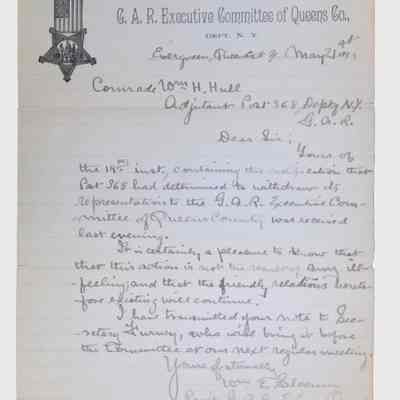 G. A. R. Executive Committee of Queens Co.,
DEPT. N. Y.
Evergreen, May 21st
Comrade Wm H. Hull
Adjutant Post 368 Dept N.Y.
G. A. R.
Dear Sir;
Yours of
the 18th inst, containing the notification that
Post 368 had determined to withdraw its
representations to the G. A. R. Executive Com-
mittee of Queens County was received
last evening.
It is certainly a pleasure to know that
that this action is not the any ill-
feeling; and that the friendly relations hereto-
fore existing will continue.
I have transmitted your note to Sec-
retary Gurney, who will bring it before
the Committee at our next regular meeting.
Yours fraternally
Wm E.